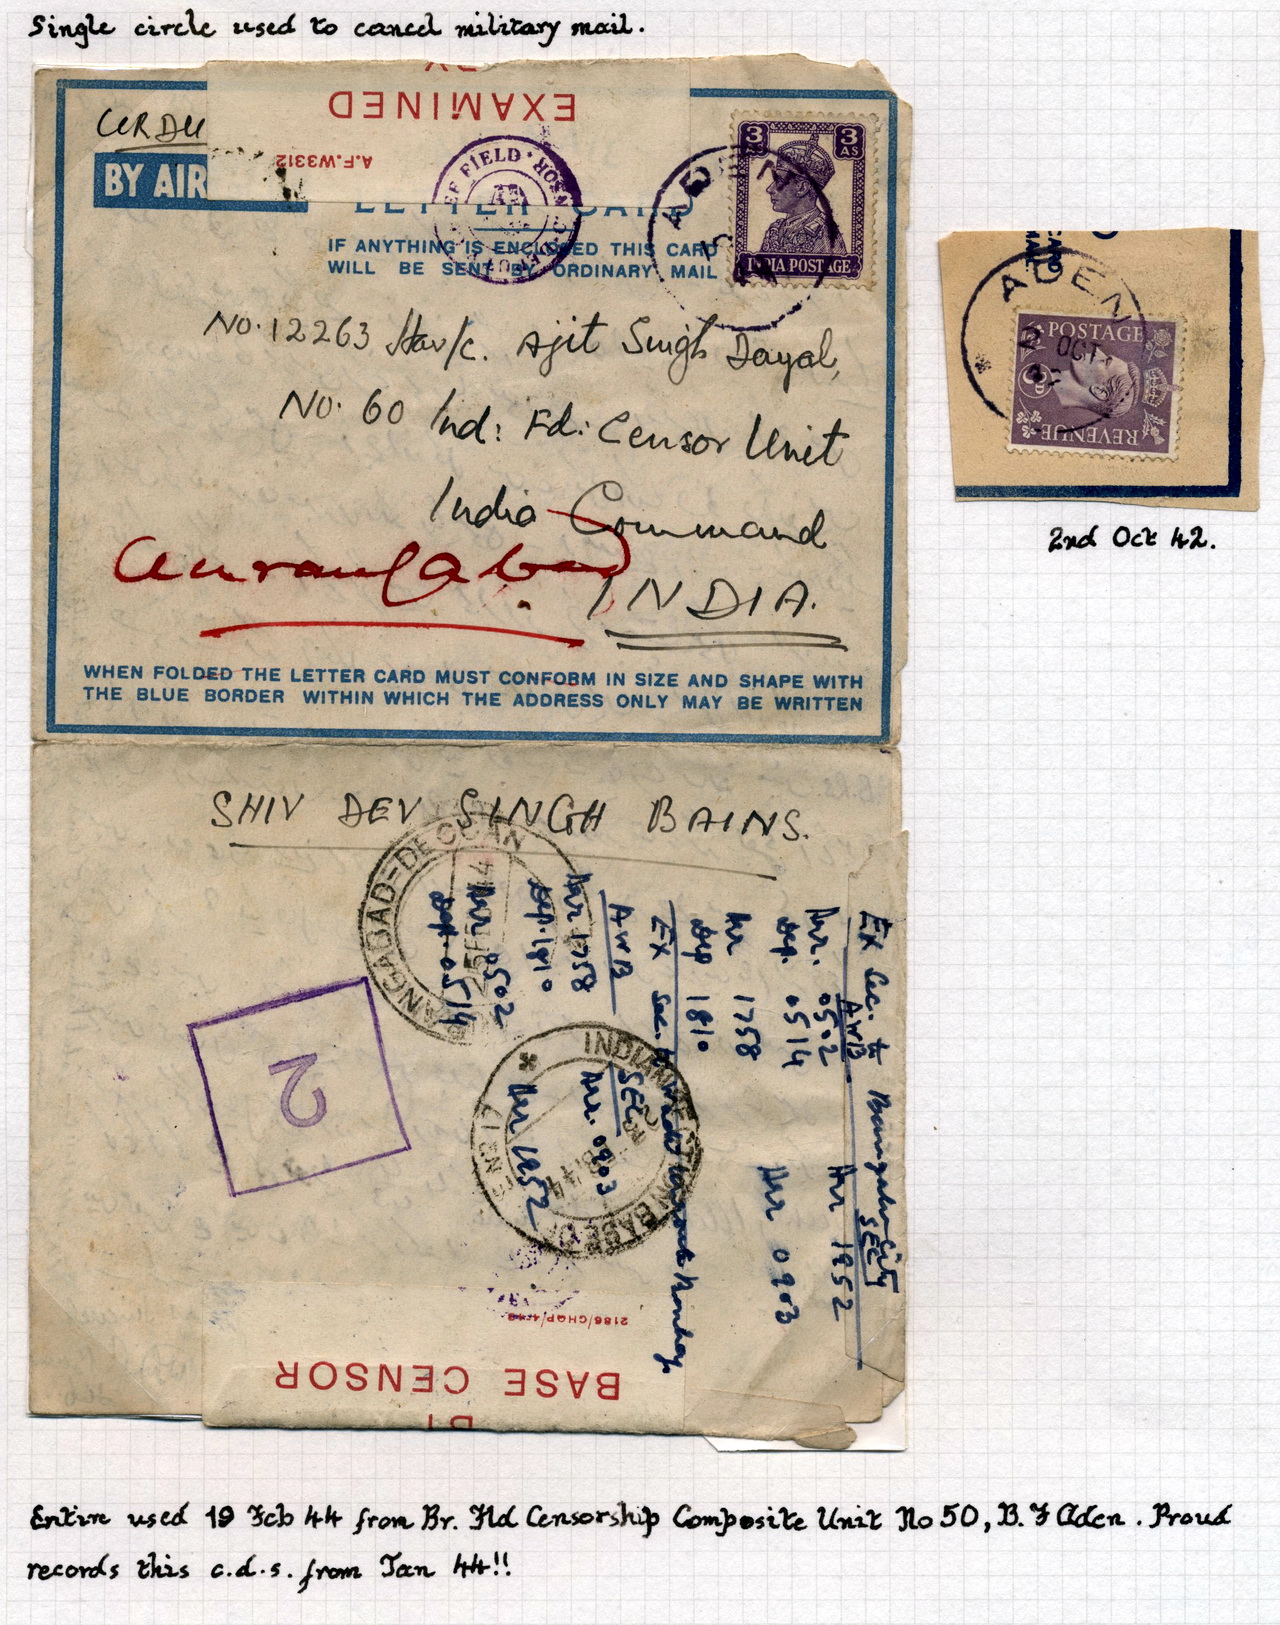 Single circle used to cancel military mail.
BY
EXAMINED
A.F.W3312
URDU
BY AIR
FIELD
LETTER CARD
IF ANYTHING IS ENCLOSED THIS CARD
WILL BE SENT BY ORDINARY MAIL
ADEN
3 3
AS AS
INDIA POSTAGE
No. 12263 Hav/c. Ajit Singh Dayal,
No. 60 Ind: Fd: Censor Unit
India Command
Aurangabad
INDIA.
WHEN FOLDED THE LETTER CARD MUST CONFORM IN SIZE AND SHAPE WITH
THE BLUE BORDER WITHIN WHICH THE ADDRESS ONLY MAY BE WRITTEN
ADEN
2 OCT
POSTAGE
REVENUE
2nd Oct 42.
SHIV DEV SINGH BAINS.
ANGABAD-DECCAN
Arr 1758
Dep. 1810
Arr 0502
Dep. 0514
AWB
SEC
Arr. 0903
Arr 1952
Arr 1758
Dep 1810
Arr. 0502
Dep. 0514
AWB
Arr 0903
SEC
Arr 1952
2
INDIAN BASE
2186/GHQP/
BASE CENSOR
BY
Entire used 19 Feb 44 from Br. Fld Censorship Composite Unit No 50, B.F Aden. Proud
records this c.d.s. from Jan 44!!